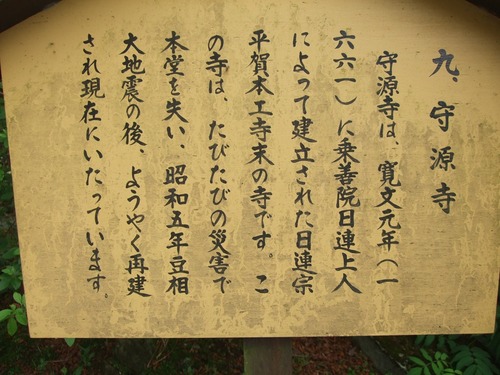 九、守源寺
守源寺は、寛文元年（一
六六一）に乗善院日連上人
によって建立された日連宗
平賀本工寺末の寺です。こ
の寺は、たびたびの災害で
本堂を失い、昭和五年豆相
大地震の後、ようやく再建
され現在にいたっています。